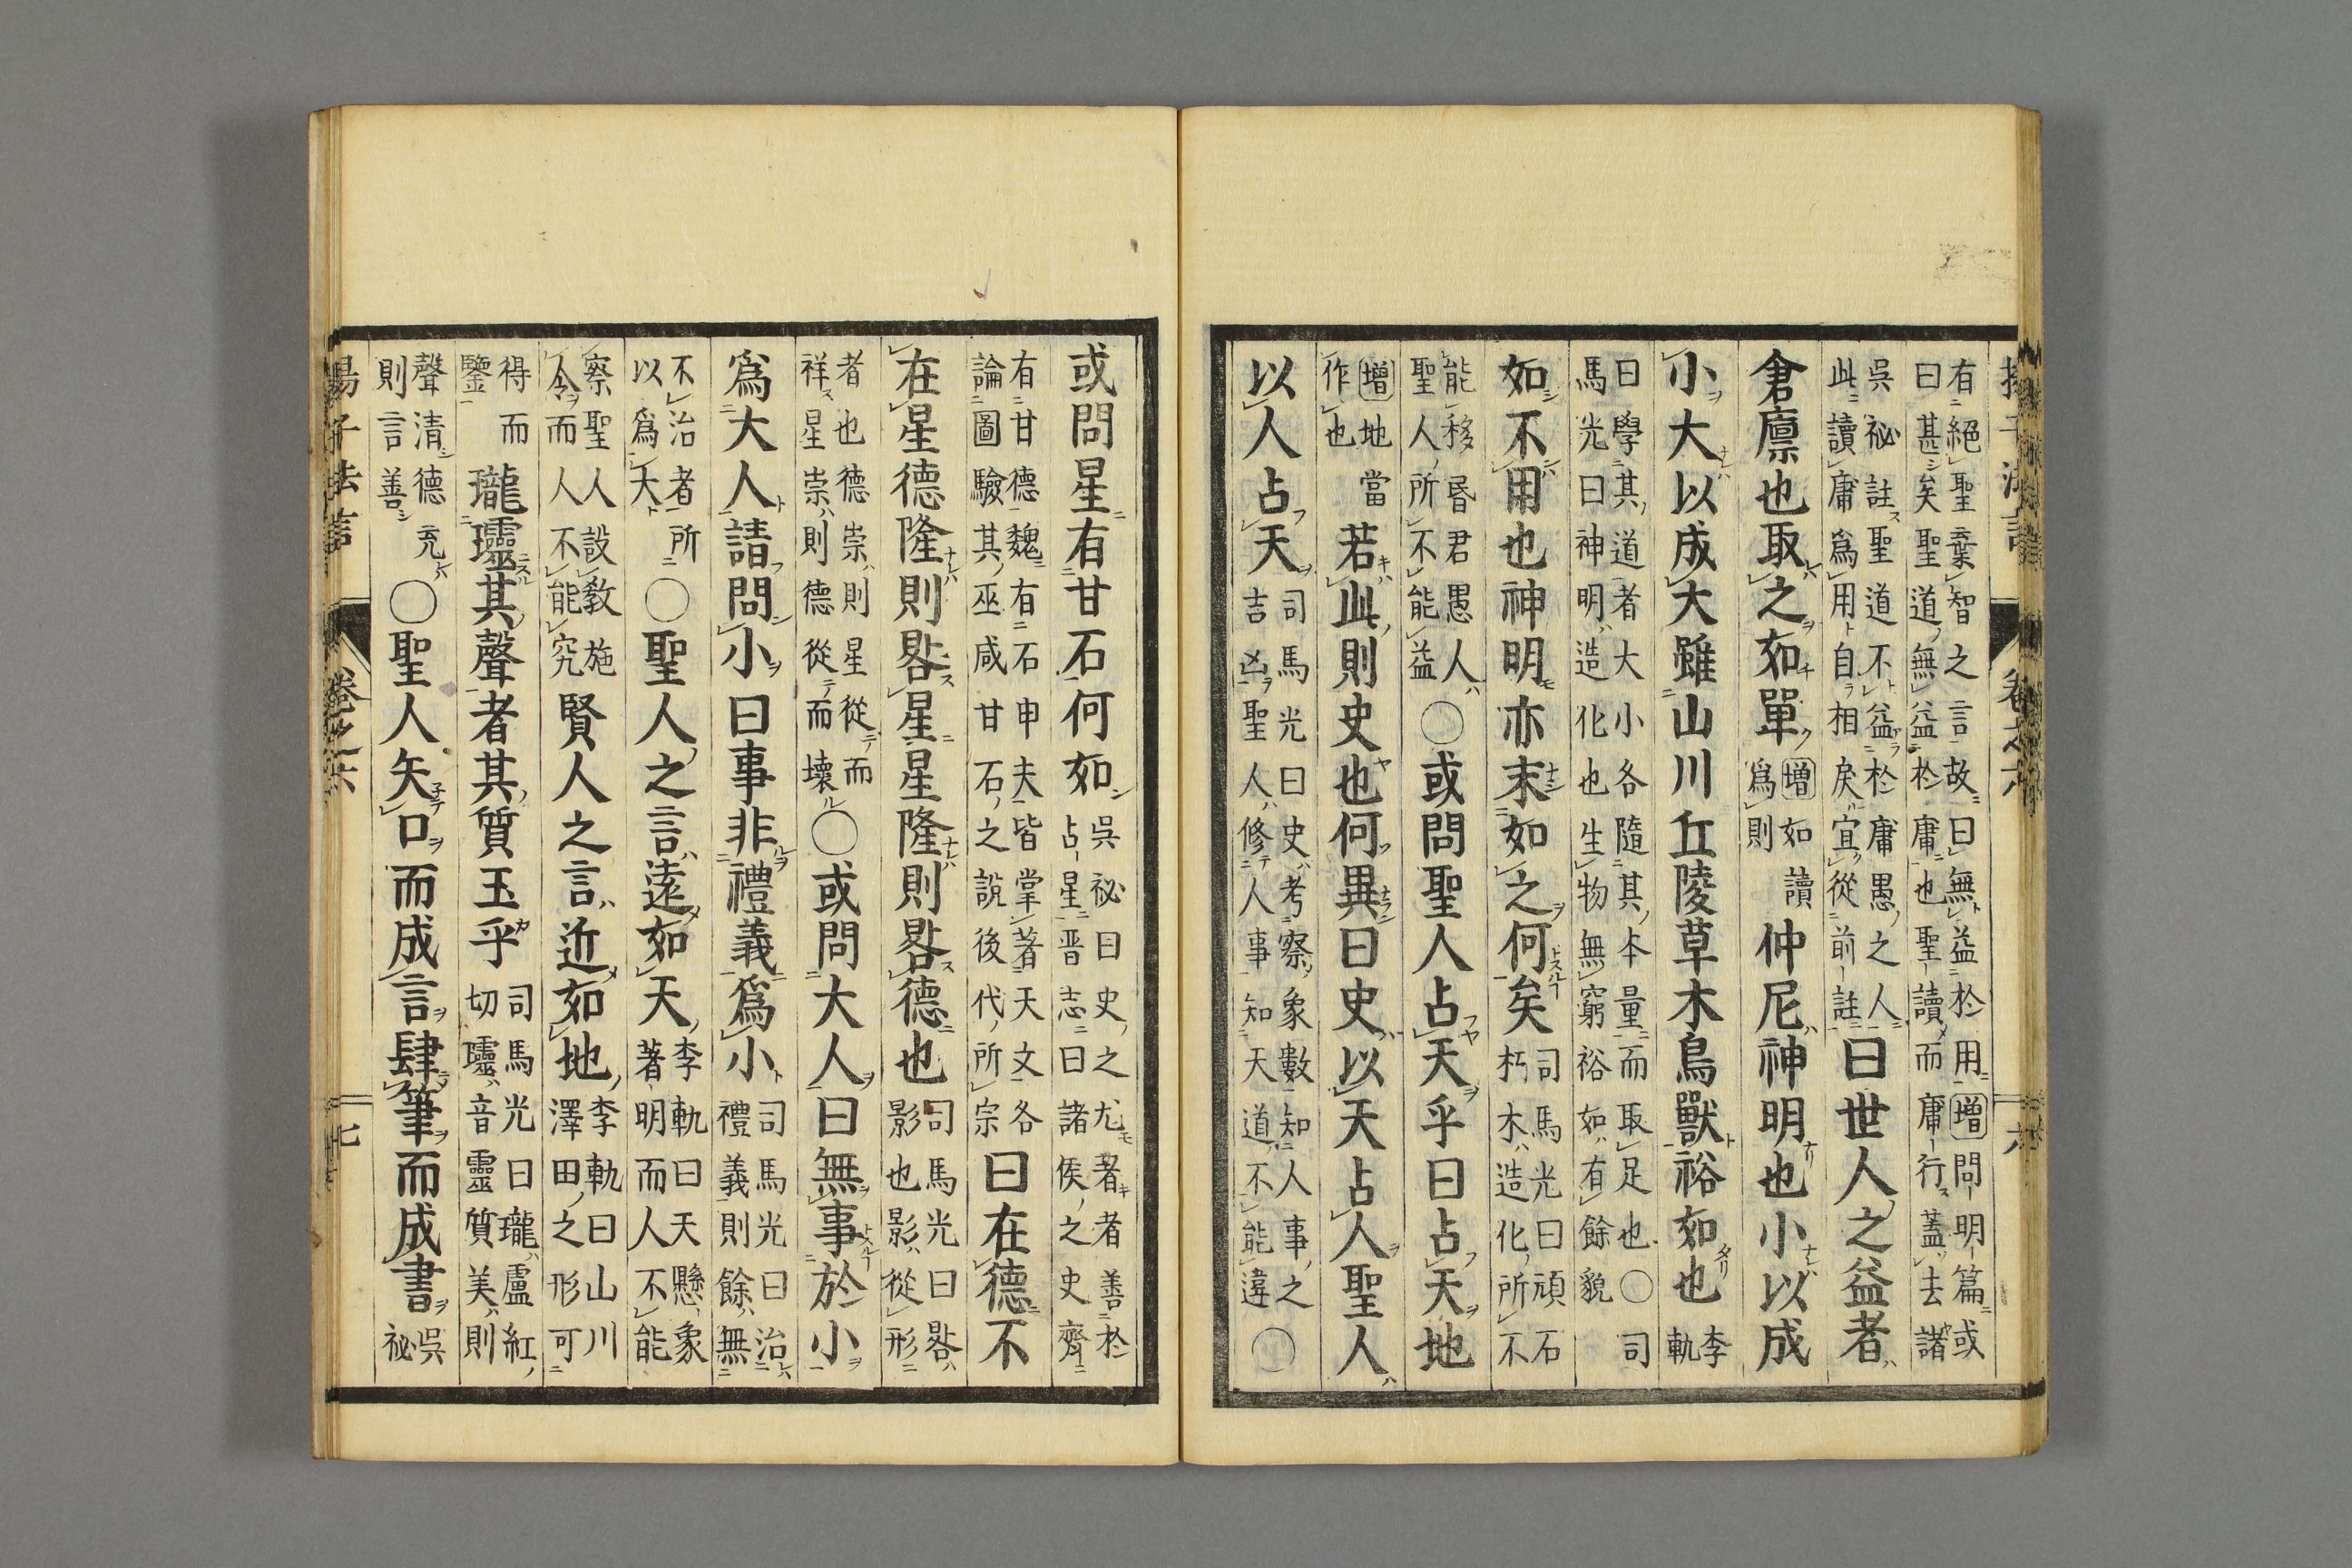 揚子法言　卷之六　六
有絕聖棄智之言故曰無益於用增問明篇或
曰甚矣聖道無益於庸也聖讀而庸行蓋去諸
吳祕註聖道不益於庸愚之人
此讀庸爲用自相戾宜從前註
曰世人之益者
倉廩也取之如單
增如讀
爲則
仲尼神明也小以成
小大以成大雖山川丘陵草木鳥獸裕如也
李
軌
曰學其道者大小各隨其本量而取足也○司
馬光曰神明造化也生物無窮裕如有餘貌
如不用也神明亦末如之何矣
司馬光曰頑石
朽木造化所不
能移昬君愚人
聖人所不能益
○或問聖人占天乎曰占天地
增地當
作也
若此則史也何異曰史以天占人聖人
以人占天
司馬光曰史考察象數知人事之
吉凶聖人修人事知天道不能違○
或問星有甘石何如
吳祕曰史之尤著者善於
占星晋志曰諸侯之史齊
有甘德魏有石申夫皆掌著天文各
論圖驗其巫咸甘石之說後代所宗
曰在德不
在星德隆則晷星星隆則晷德也
司馬光曰晷
影也影從形
者也德崇則星從而
祥星崇則德從而壞
○或問大人曰無事於小
爲大人請問小曰事非禮義爲小
司馬光曰治
禮義則餘無
不治者所
以爲大
○聖人之言遠如天
李軌曰天懸象
著明而人不能
察聖人設教施
令而人不能究
賢人之言近如地
李軌曰山川
澤田之形可
得而
鑒
瓏𤫩其聲者其質玉乎
司馬光曰瓏盧紅
切𤫩音靈質美則
聲清德充
則言善
○聖人矢口而成言肆筆而成書
吳
祕
揚子法言　卷之六　七